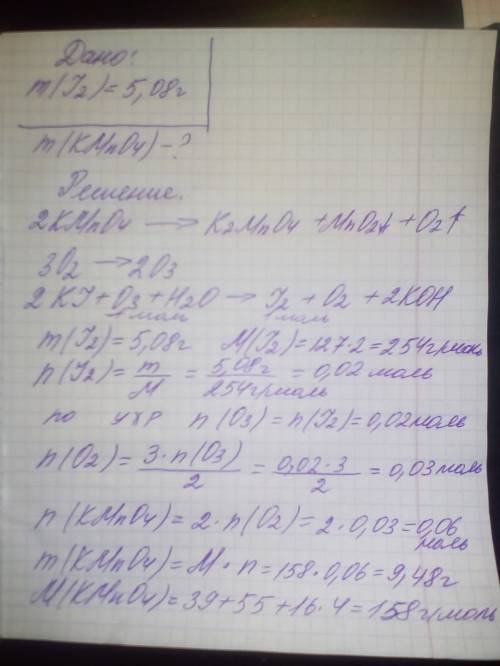 Дано:
m(J2)=5,08г
m(KMnO4)-?
Решение.
2KMnO4 → K2MnO4 + MnO2↓ + O2↑
3O2 → 2O3
2KJ + O3 + H2O → J2 + O2 + 2KOH
1моль 1моль
m(J2)=5,08г M(J2)=127·2=254г/моль
n(J2)= m/M = 5,08г/254г/моль = 0,02 моль
по ухр n(O3)=n(J2)=0,02моль
n(O2)= 3·n(O3)/2 = 0,02·3/2 = 0,03моль
n(KMnO4)=2·n(O2)=2·0,03=0,06
моль
m(KMnO4)=M·n=158·0,06=9,48г
M(KMnO4)=39+55+16·4=158г/моль